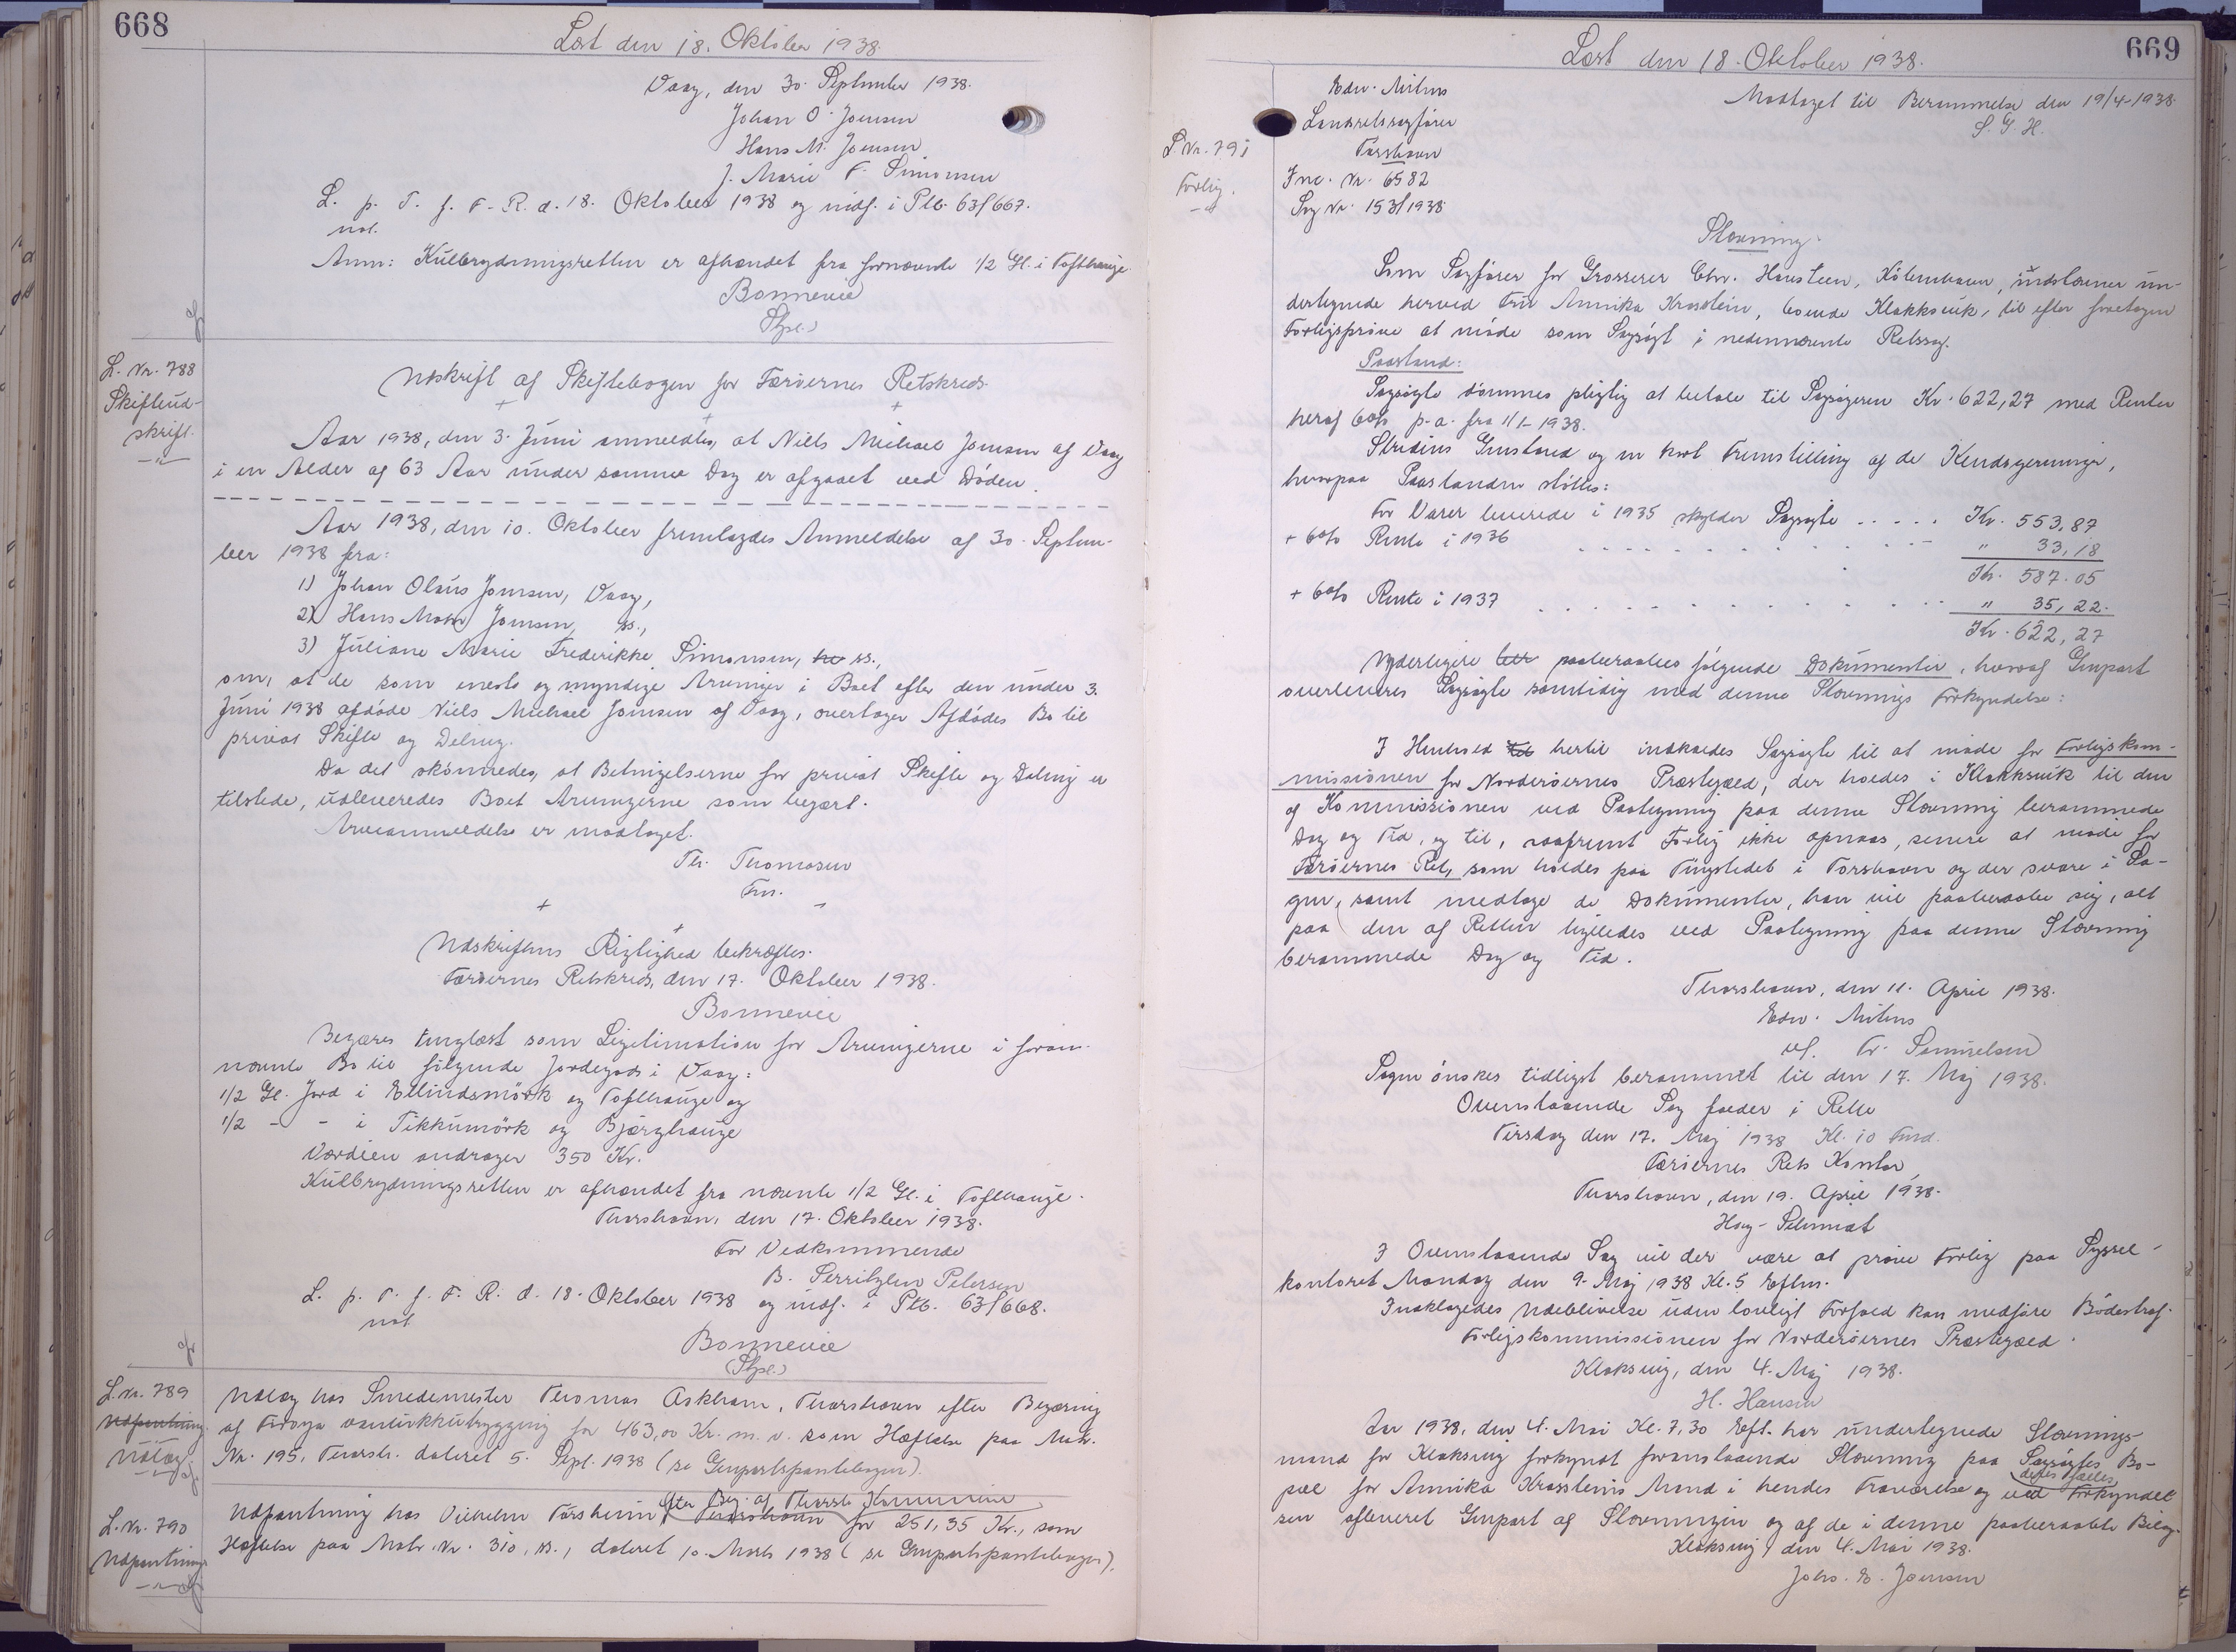 668
Læst den 18. Oktober 1938.
Vaag, den 30. September 1938.
Johan O. Joensen
Hans M. Joensen
J. Marie F. Simonsen
L. p. T. f. F. R. d. 18. Oktober 1938 og indf. i Ptb. 63/667.
not.
Anm: Kulbrydningsretten er afhændet fra fornævnte 1/2 Gl. i Tofthauge
Bonnevie
(Stpl.)
L. Nr. 788
Skifteud-
skrift.
Udskrift af Skiftebogen for Færøernes Retskreds.
Aar 1938, den 3. Juni anmeldtes, at Niels Michael Joensen af Vaag
i en Alder af 63 Aar under samme Dag er afgaaet ved Døden.
Aar 1938, den 10. Oktober fremlagdes Anmeldelse af 30. Septem-
ber 1938 fra:
1) Johan Olaus Joensen, Vaag,
2) Hans Mohr Joensen, ss.,
3) Juliane Marie Frederikke Simonsen, ss.,
om, at de som eneste og myndige Arvinger i Boet efter den under 3.
Juni 1938 afdøde Niels Michael Joensen af Vaag, overtager Afdødes Bo til
privat Skifte og Deling.
Da det skønnedes, at Betingelserne for privat Skifte og Deling er
tilstede, udleveredes Boet Arvingerne som begært.
Arveanmeldelse er modtaget.
Th. Thomasen
Fm.
Udskriftens Rigtighed bekræftes.
Færøernes Retskreds, den 17. Oktober 1938.
Bonnevie
Begæres tinglæst som Legitimation for Arvingerne i foran-
nævnte Bo til følgende Jordegods i Vaag:
1/2 Gl. Jord i Ellindsmörk og Tofthauge og
1/2 - - i Tikkumörk og Bjærghauge
Værdien andrager 350 Kr.
Kulbrydningsretten er afhændet fra nævnte 1/2 Gl. i Tofthauge.
Thorshavn, den 17. Oktober 1938.
For Vedkommende
B. Serritzlew Petersen
L. p. T. f. F. R. d. 18. Oktober 1938 og indf. i Ptb. 63/668.
not
Bonnevie
(Stpl.)
L. Nr. 789
Udpantning.
Udlæg.
Udlæg hos Smedemester Thomas Askham, Thorshavn efter Begæring
af Föroya vanlukkutrygging for 463,00 Kr. m. v. som Hæftelse paa Matr.
Nr. 195, Thorsh. dateret 5. Sept. 1938 (se Genpartspantebogen).
L. Nr. 790
Udpantning
Udpantning hos Vilhelm Torsheim, efter Beg. af Thorsh. Kommune
Thorshavn for 251,35 Kr., som
Hæftelse paa Matr. Nr. 310, ss., dateret 10. Marts 1938 (se Genpartspantebogen).
669
Læst den 18. Oktober 1938.
Edw. Mitens
Landsretssagfører
Tórshavn
Modtaget til Berammelse den 19/4-1938.
S. J. H.
L Nr. 791
Forlig.
Jnc. Nr. 6582
Sag Nr. 153/1938
Stævning.
Som Sagfører for Grosserer Chr. Hansteen, København, indstævner un-
dertegnede herved Fru Annika Krosslein, boende Klakksvik, til efter foretagen
Forligsprøve at møde som Sagsøgt i nedennævnte Retssag.
Paastand:
Sagsøgte dømmes pligtig at betale til Sagsøgeren Kr. 622,27 med Renter
heraf 6% p. a. fra 1/1-1938.
Stridens Genstand og en kort Fremstilling af de Kendsgerninger,
hvorpaa Paastanden støttes:
For Varer leverede i 1935 skylder Sagsøgte ..... Kr. 553,87
+ 6% Rente i 1936 ..... " 33,18
Kr. 587.05
+ 6% Rente i 1937 ..... " 35,22.
Kr. 622,27
Yderligere paaberaabes følgende Dokumenter, hvoraf Genpart
overleveres Sagsøgte samtidig med denne Stævnings Forkyndelse:
I Henhold hertil indkaldes Sagsøgte til at møde for Forligskom-
missionen for Norderøernes Præstegæld, der holdes i Klakksvik til den
af Kommissionen ved Paategning paa denne Stævning berammede
Dag og Tid, og til, saafremt Forlig ikke opnaas, senere at møde for
Færøernes Ret, som holdes paa Tingstedet i Torshavn og der svare i Sa-
gen, samt medtage de Dokumenter, han vil paaberaabe sig, alt
paa den af Retten ligeledes ved Paategning paa denne Stævning
berammede Dag og Tid.
Thorshavn, den 11. April 1938.
Edw. Mitens
Fr. Samuelsen
Sagen ønskes tidligst berammet til den 17. Maj 1938.
Ovenstaaende Sag foeder i Rette
Tirsdag den 17. Maj 1938 Kl. 10 Fmd.
Færøernes Rets Kontor,
Thorshavn, den 19. April 1938.
Høg-Schmidt
I Ovenstaaende Sag vil der være at prøve Forlig paa Syssel-
kontoret Mandag den 9. Maj 1938 Kl. 5 Eftm.
Indklagedes Udeblivelse uden lovligt Forfald kan medføre Bødestraf.
Forligskommissionen for Norderøernes Præstegæld.
Klaksvig, den 4. Maj 1938.
H. Hansen
Aar 1938, den 4. Mai Kl. 7,30 Eft. har undertegnede Stævnings-
mand for Klaksvig forkyndt foranstaaende Stævning paa Sagsøgtes Bo-
pæl for Annika Krossleins Mand i hendes Fraværelse og ved Forkyndel
deres fælles
sen afleveret Genpart af Stævningen og af de i denne paaberaabte Bilag.
Klaksvig den 4. Mai 1938.
Johs. E. Joensen